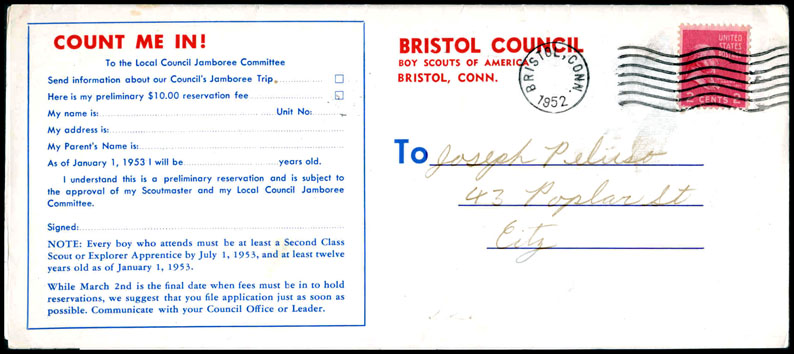 COUNT ME IN!
To the Local Council Jamboree Committee
Send information about our Council's Jamboree Trip
Here is my preliminary $10.00 reservation fee
My name is: Unit No:
My address is:
My Parent's Name is:
As of January 1, 1953 I will be years old.
I understand this is a preliminary reservation and is subject to
the approval of my Scoutmaster and my Local Council Jamboree
Committee.
Signed:
NOTE: Every boy who attends must be at least a Second Class
Scout or Explorer Apprentice by July 1, 1953, and at least twelve
years old as of January 1, 1953.
While March 2nd is the final date when fees must be in to hold
reservations, we suggest that you file application just as soon as
possible. Communicate with your Council Office or Leader.
BRISTOL COUNCIL
BOY SCOUTS OF AMERICA
BRISTOL, CONN.
BRISTOL, CONN.
1952
UNITED
STATES
2 CENTS 2
To Joseph Peluso
43 Poplar St
City